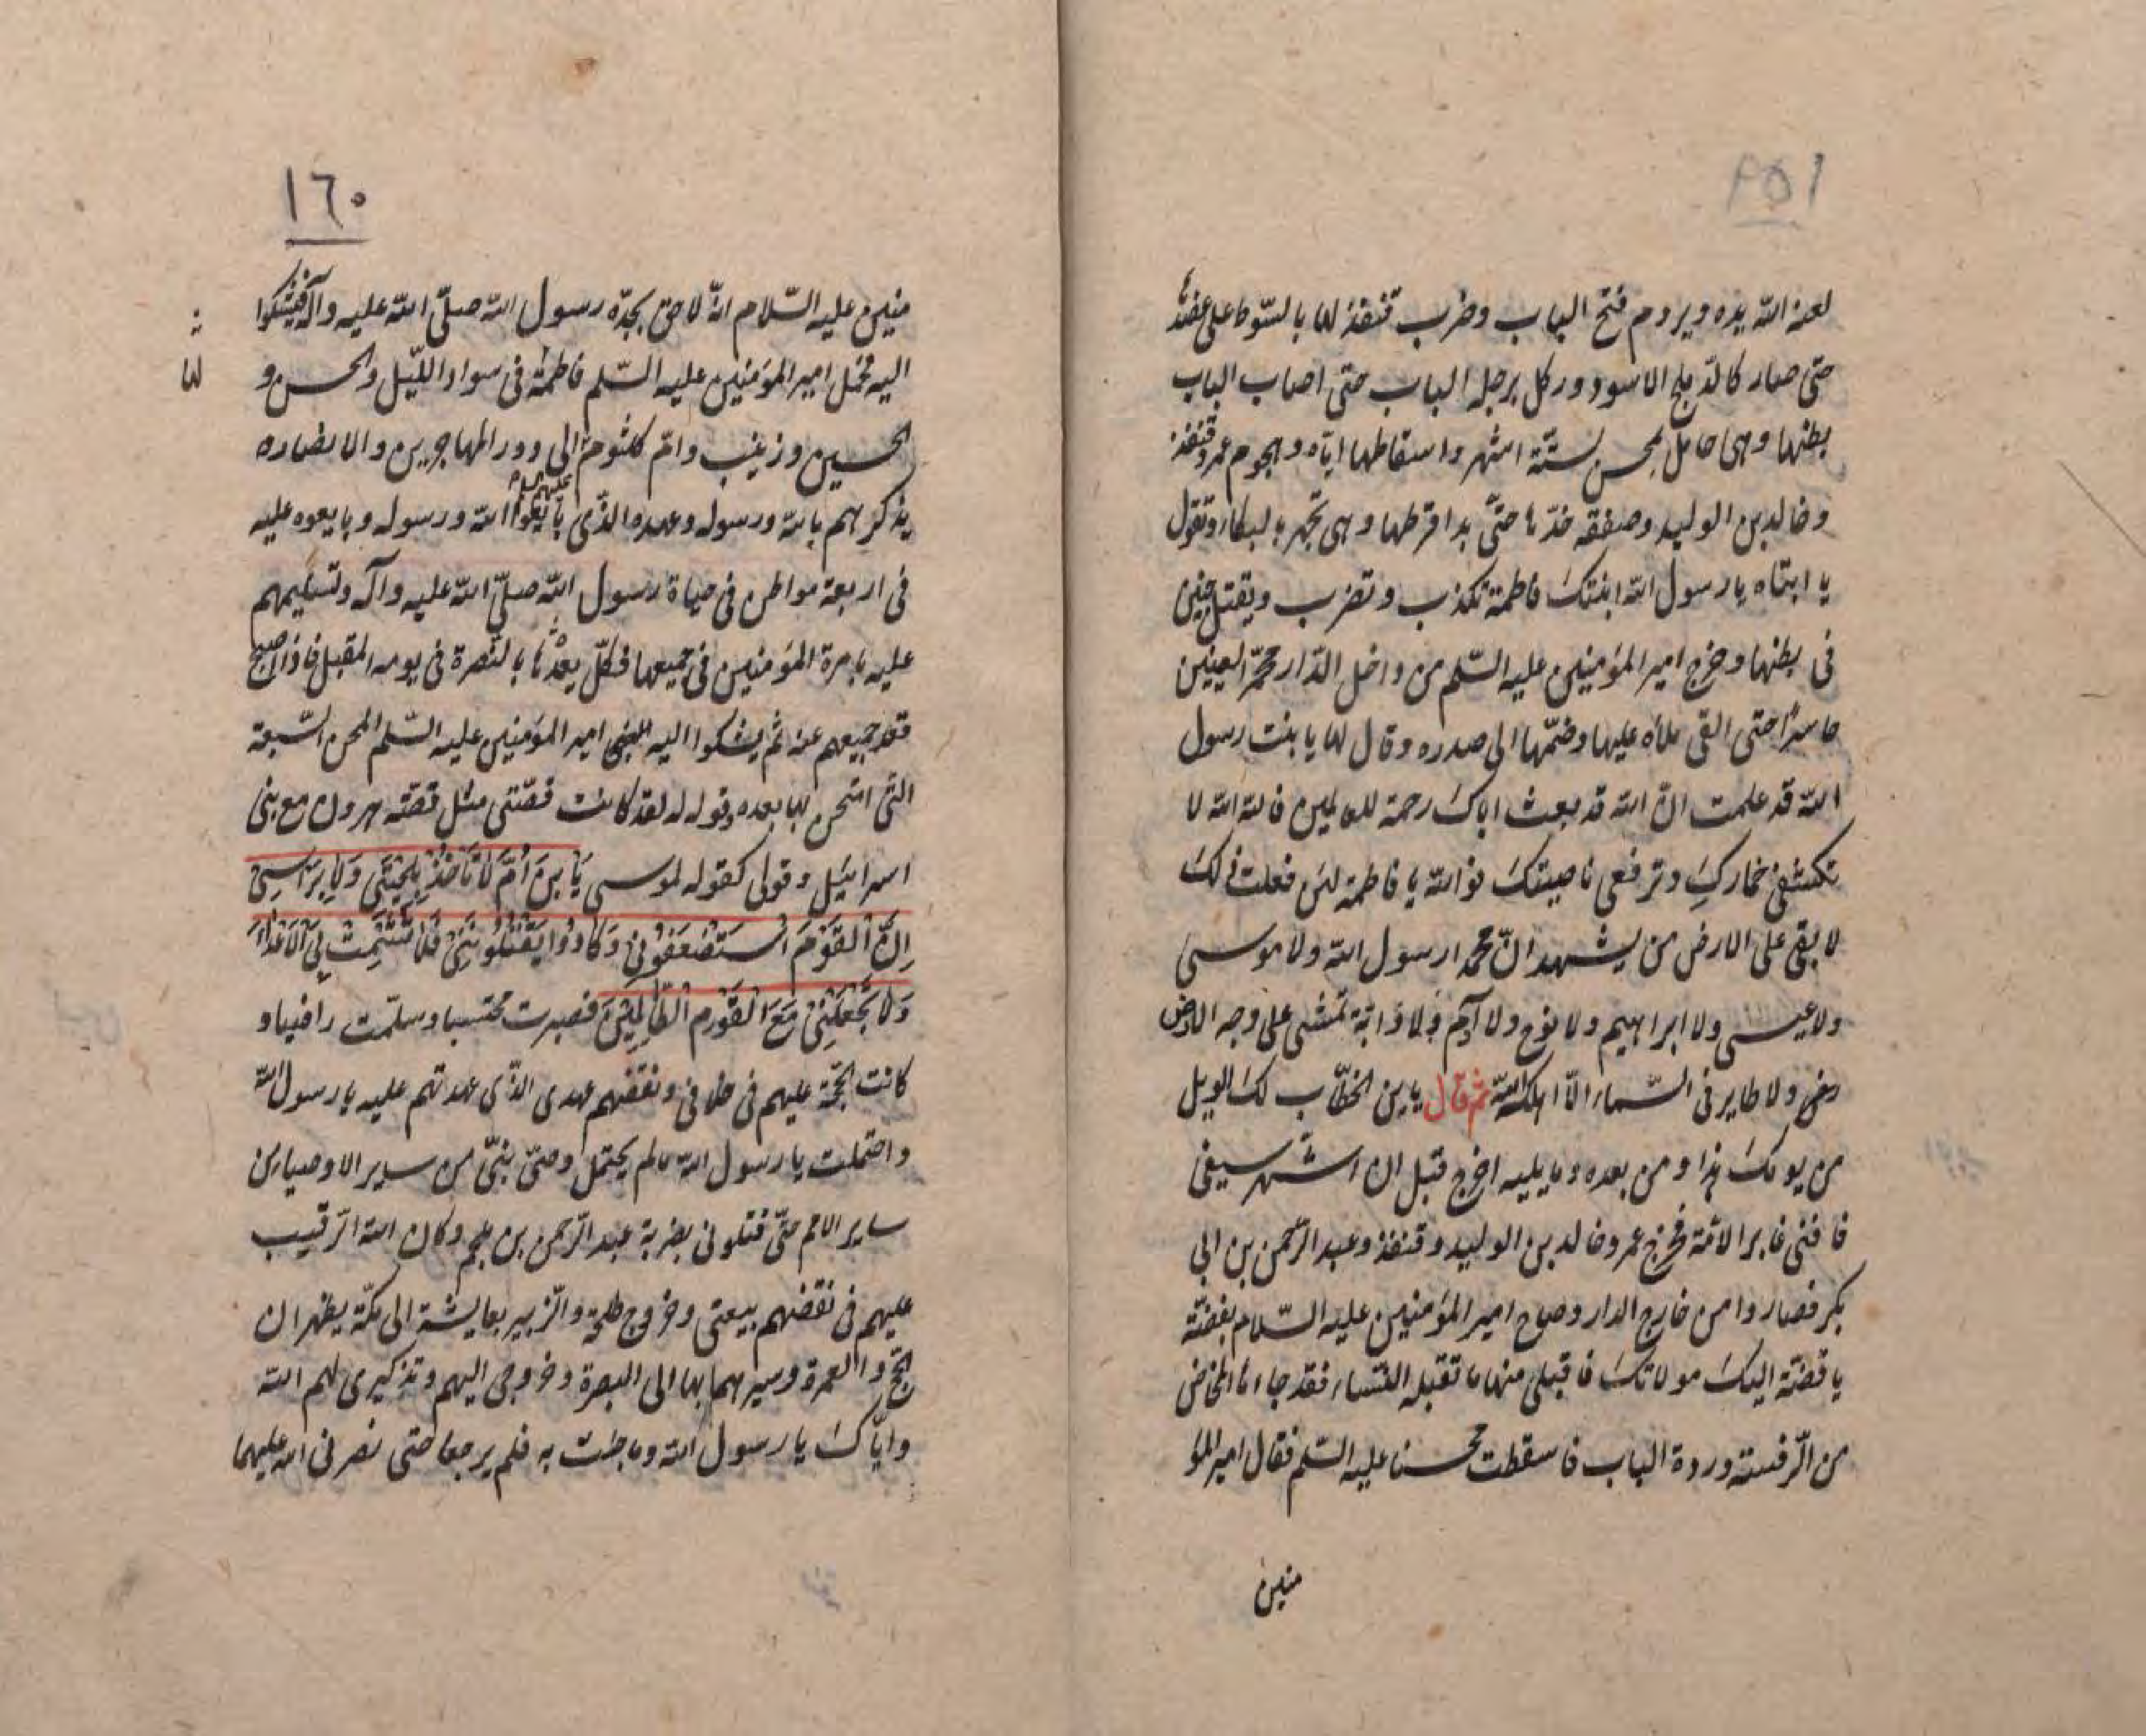 لعنه الله يده ويروم فتح الباب وضرب قنفذ لها بالسوط على عضدها
حتى صار كالدملج الاسود وركل برجله الباب حتى اصاب الباب
بطنها وهى حامل بمحسن لستّة اشهر واسقاطها ايّاه وهجوم عمر وقنفذ
وخالد بن الوليد وصفقه خدّها حتّى بدا قرطها وهى تجهر بالبكاء وتقول
يا ابتاه يا رسول الله ابنتك فاطمة تكذب وتضرب ويقتل جنين
فى بطنها وخرج امير المؤمنين عليه السّلم من داخل الدّار محمّر العينين
حاسرًا حتى القى ملاه عليها وضمّها الى صدره وقال لها يا بنت رسول
الله قد علمت انّ الله قد بعث اباك رحمة للعالمين فالله الله لا
تكشفى خمارك وترفعى ناصيتك فوالله يا فاطمة لئن فعلت ذلك
لا بقى على الارض من يشهد انّ محمدا رسول الله ولا موسى
ولا عيسى ولا ابراهيم ولا نوح ولا آدم ولا دابّة تمشى على وجه الارض
رض ولا طاير فى السّماء الّا اهلكه الله ثم قال يا بن الخطّاب لك الويل
من يومك هذا ومن بعده وما يليه اخرج قبل ان اشهر سيفى
فافنى غابر الامّة فخرج عمر وخالد بن الوليد وقنفذ وعبد الرّحمن بن ابى
بكر فصاروا من خارج الدار وصاح امير المؤمنين عليه السّلام بفضّة
يا فضّة اليك مولاتك فاقبلى منها ما تقبله النّساء فقد جاءها المخاض
من الرّفسة وردة الباب فاسقطت محسنا عليه السّلم فقال امير المؤ
منين
١٦٠
منين عليه السّلام انّه لاحق بجدّه رسول الله صلّى الله عليه وآله فيشكوا
اليه وحمل امير المؤمنين عليه السّلم فاطمة فى سواد اللّيل والحسن و
لها
الحسين وزينب وامّ كلثوم الى دور المهاجرين والانصاره
يذكرهم بالله ورسوله وعهده الذّى بايعوا الله ورسوله وبايعوه عليه
فى اربعة مواطن فى حياة رسول الله صلّى الله عليه وآله وتسليمهم
عليه بامرة المؤمنين فى جميعها فكلّ يعدها بالنّصرة فى يومه المقبل فاذا اصبح
قعد جميعهم عنه ثم يشكوا اليه امير المؤمنين عليه السّلم المحن السّبعة
التى امتحن بها بعده وقوله له لقد كانت قصّتى مثل قصّة هرون مع بنى
اسرائيل وقولى كقوله لموسى يَا بنَ اُمَّ لَا تَأخُذْ بِلِحْيَتِى وَلَا بِرَأسِى
اِنَّ الْقَوْمَ اسْتَضْعَفُونِى وَكَادُوا يَقْتُلُونَنِى فَلَا تُشْمِتْ بِىَ الْاَعْدَاءَ
وَلَا تَجْعَلْنِى مَعَ الْقَوْمِ الظَّالِمِينَ فصبرت محتسبا وسلّمت راضيا و
كانت الحجّة عليهم فى خلافى ونقضهم عهدى الذّى عهدتهم عليه يا رسول الله
واحتملت يا رسول الله مالم يحتمل وصىّ نبىّ من ساير الاوصياء من
ساير الامم حتّى قتلونى بضربة عبد الرّحمن بن ملجم وكان الله الرّقيب
عليهم فى نقضهم بيعتى وخروج طلحة والزّبير بعايشة الى مكّة يظهران
الحجّ والعمرة وسيرهما بها الى البصرة وخروجى اليهم وتذكيرى لهم الله
وايّاك يا رسول الله وما جئت به فلم يرجعا حتى نصرنى الله عليهما